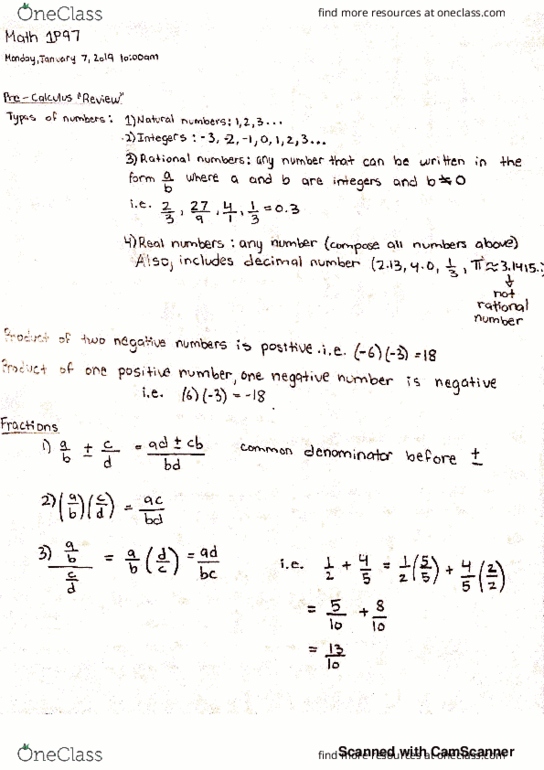 OneClass
find more resources at oneclass.com
Math 1P97
Monday, January 7, 2019 10:00am
Pre-Calculus "Review"
Types of numbers: 1) Natural numbers: 1, 2, 3...
2) Integers: -3, -2, -1, 0, 1, 2, 3...
3) Rational numbers: any number that can be written in the
form a/b where a and b are integers and b≠0
i.e. 2/3, 27/9, 4/1, 1/3 = 0.3
4) Real numbers: any number (compose all numbers above)
Also, includes decimal number (2.13, 4.0, 1/3, π ≈ 3.1415..
↓
not
rational
number
Product of two negative numbers is positive. i.e. (-6)(-3) = 18
Product of one positive number, one negative number is negative
i.e. (6)(-3) = -18
Fractions
1) a/b ± c/d = ad ± cb / bd common denominator before ±
2) (a/b)(c/d) = ac/bd
3) a/b / c/d = a/b (d/c) = ad/bc
i.e. 1/2 + 4/5 = 1/2 (5/5) + 4/5 (2/2)
= 5/10 + 8/10
= 13/10
OneClass
find more resources at oneclass.com
Scanned with CamScanner